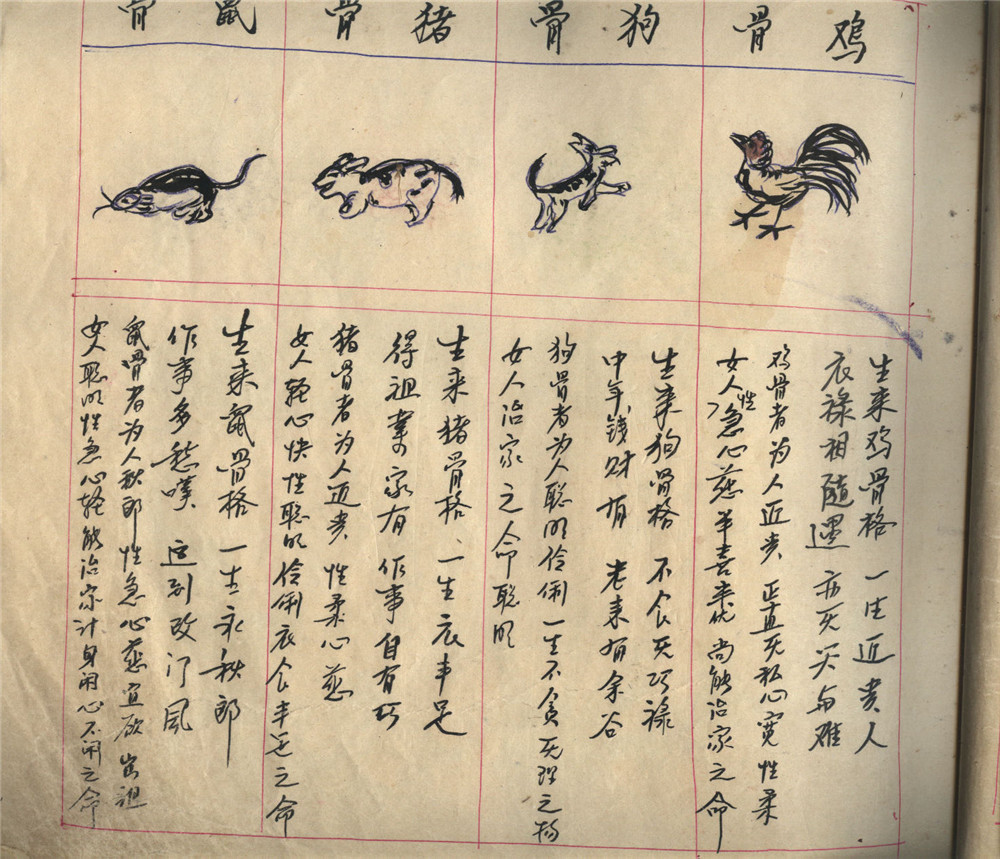 鸡骨
生来鸡骨格 一生近贵人
衣禄相随遇 亦灾灾与难
鸡骨者为人近贵 正直无私心宽性柔
女人性急心慈 尚能治家之命
狗骨
生来狗骨格 不食无巧禄
中年钱财有 老来有余谷
狗骨者为人聪明伶俐一生不贪无理之物
女人治家之命聪明
猪骨
生来猪骨格 一生衣丰足
得祖业家有 作事自有巧
猪骨者为人近贵 性柔心慈
女人轻心快性聪明伶俐衣食丰足之命
鼠骨
生来鼠骨格 一生永秋郎
作事多愁叹 运到改门风
鼠骨者为人秋郎性急心慈宜 出祖
女人聪明性急心轻能治家计身闲心不闲之命